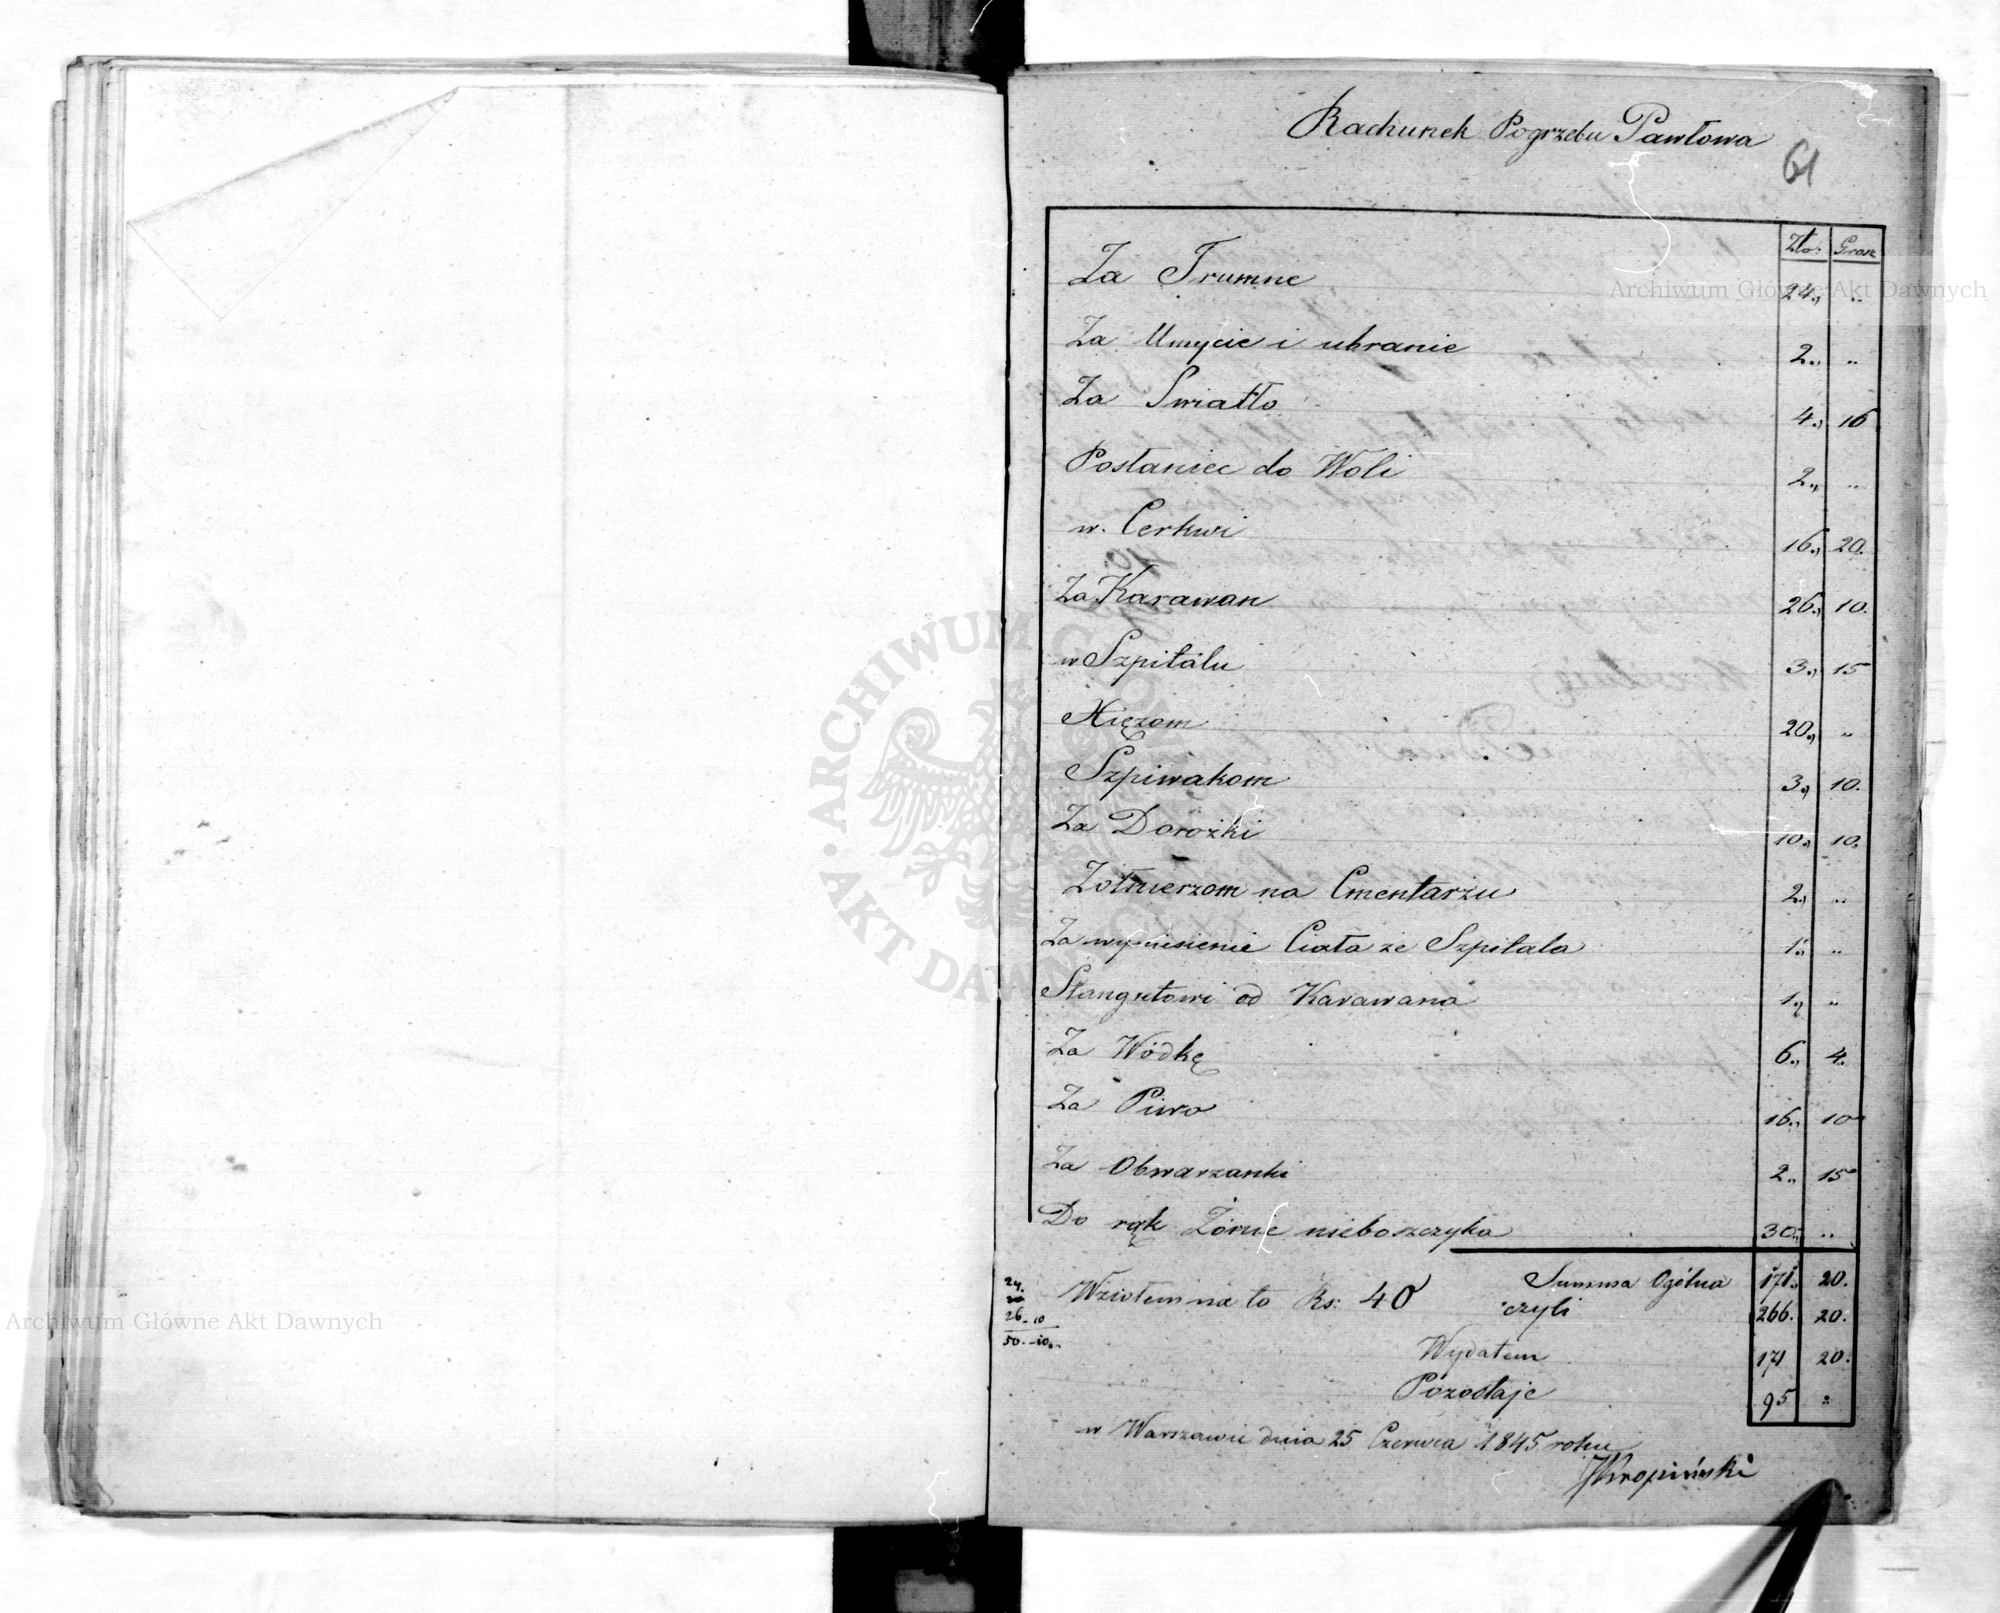 Rachunek Pogrzebu Pawłowa
61
Zło: Grosz
Za Trumne 24„ „
Za Umycie i ubranie 2„ „
Za Swiatło 4„ 16
Posłaniec do Woli 2„ „
w. Cerkwi 16„ 20.
Za Karawan 26„ 10.
w Szpitalu 3„ 15
Xięzom 20„ „
Szpiwakom 3„ 10.
Za Dorożki 10„ 10.
Zołnierzom na Cmentarzu 2„ „
Za wyniesienie Ciała ze Szpitala 1„ „
Stangretowi od Karawana 1„ „
Za Wódkę 6„ 4.
Za Piwo 16„ 10
Za Obwarzanki 2„ 15
Do rąk Żonie nieboszczyka 30„ „
Wziołem na to Rs: 40 Summa Ogólna 171„ 20.
czyli 266. 20.
Wydałem 171 20.
Pozostaje 95 „
24.
26-10
50.-10.
w Warszawie dnia 25 Czerwca 1845 roku
JKropiński
Archiwum Główne Akt Dawnych
Archiwum Główne Akt Dawnych
ARCHIWUM GŁÓWNE AKT DAWNYCH